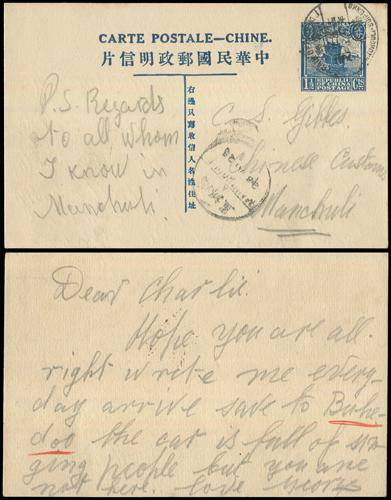 CARTE POSTALE–CHINE.
中華民國郵政明信片
右邊只寫收信人名姓住址
REPUBLIC
OF CHINA
POSTAGE
1½ Cts
P.S. Regards
to all whom
I know in
Manchuli.
C. S. Gibbes
Chinese Customs
Manchuli
Dear Charlie.
Hope you are all.
right write me every-
day arrive save to Buhe-
doo the car is full of sin
ging people but you are
not here. love George